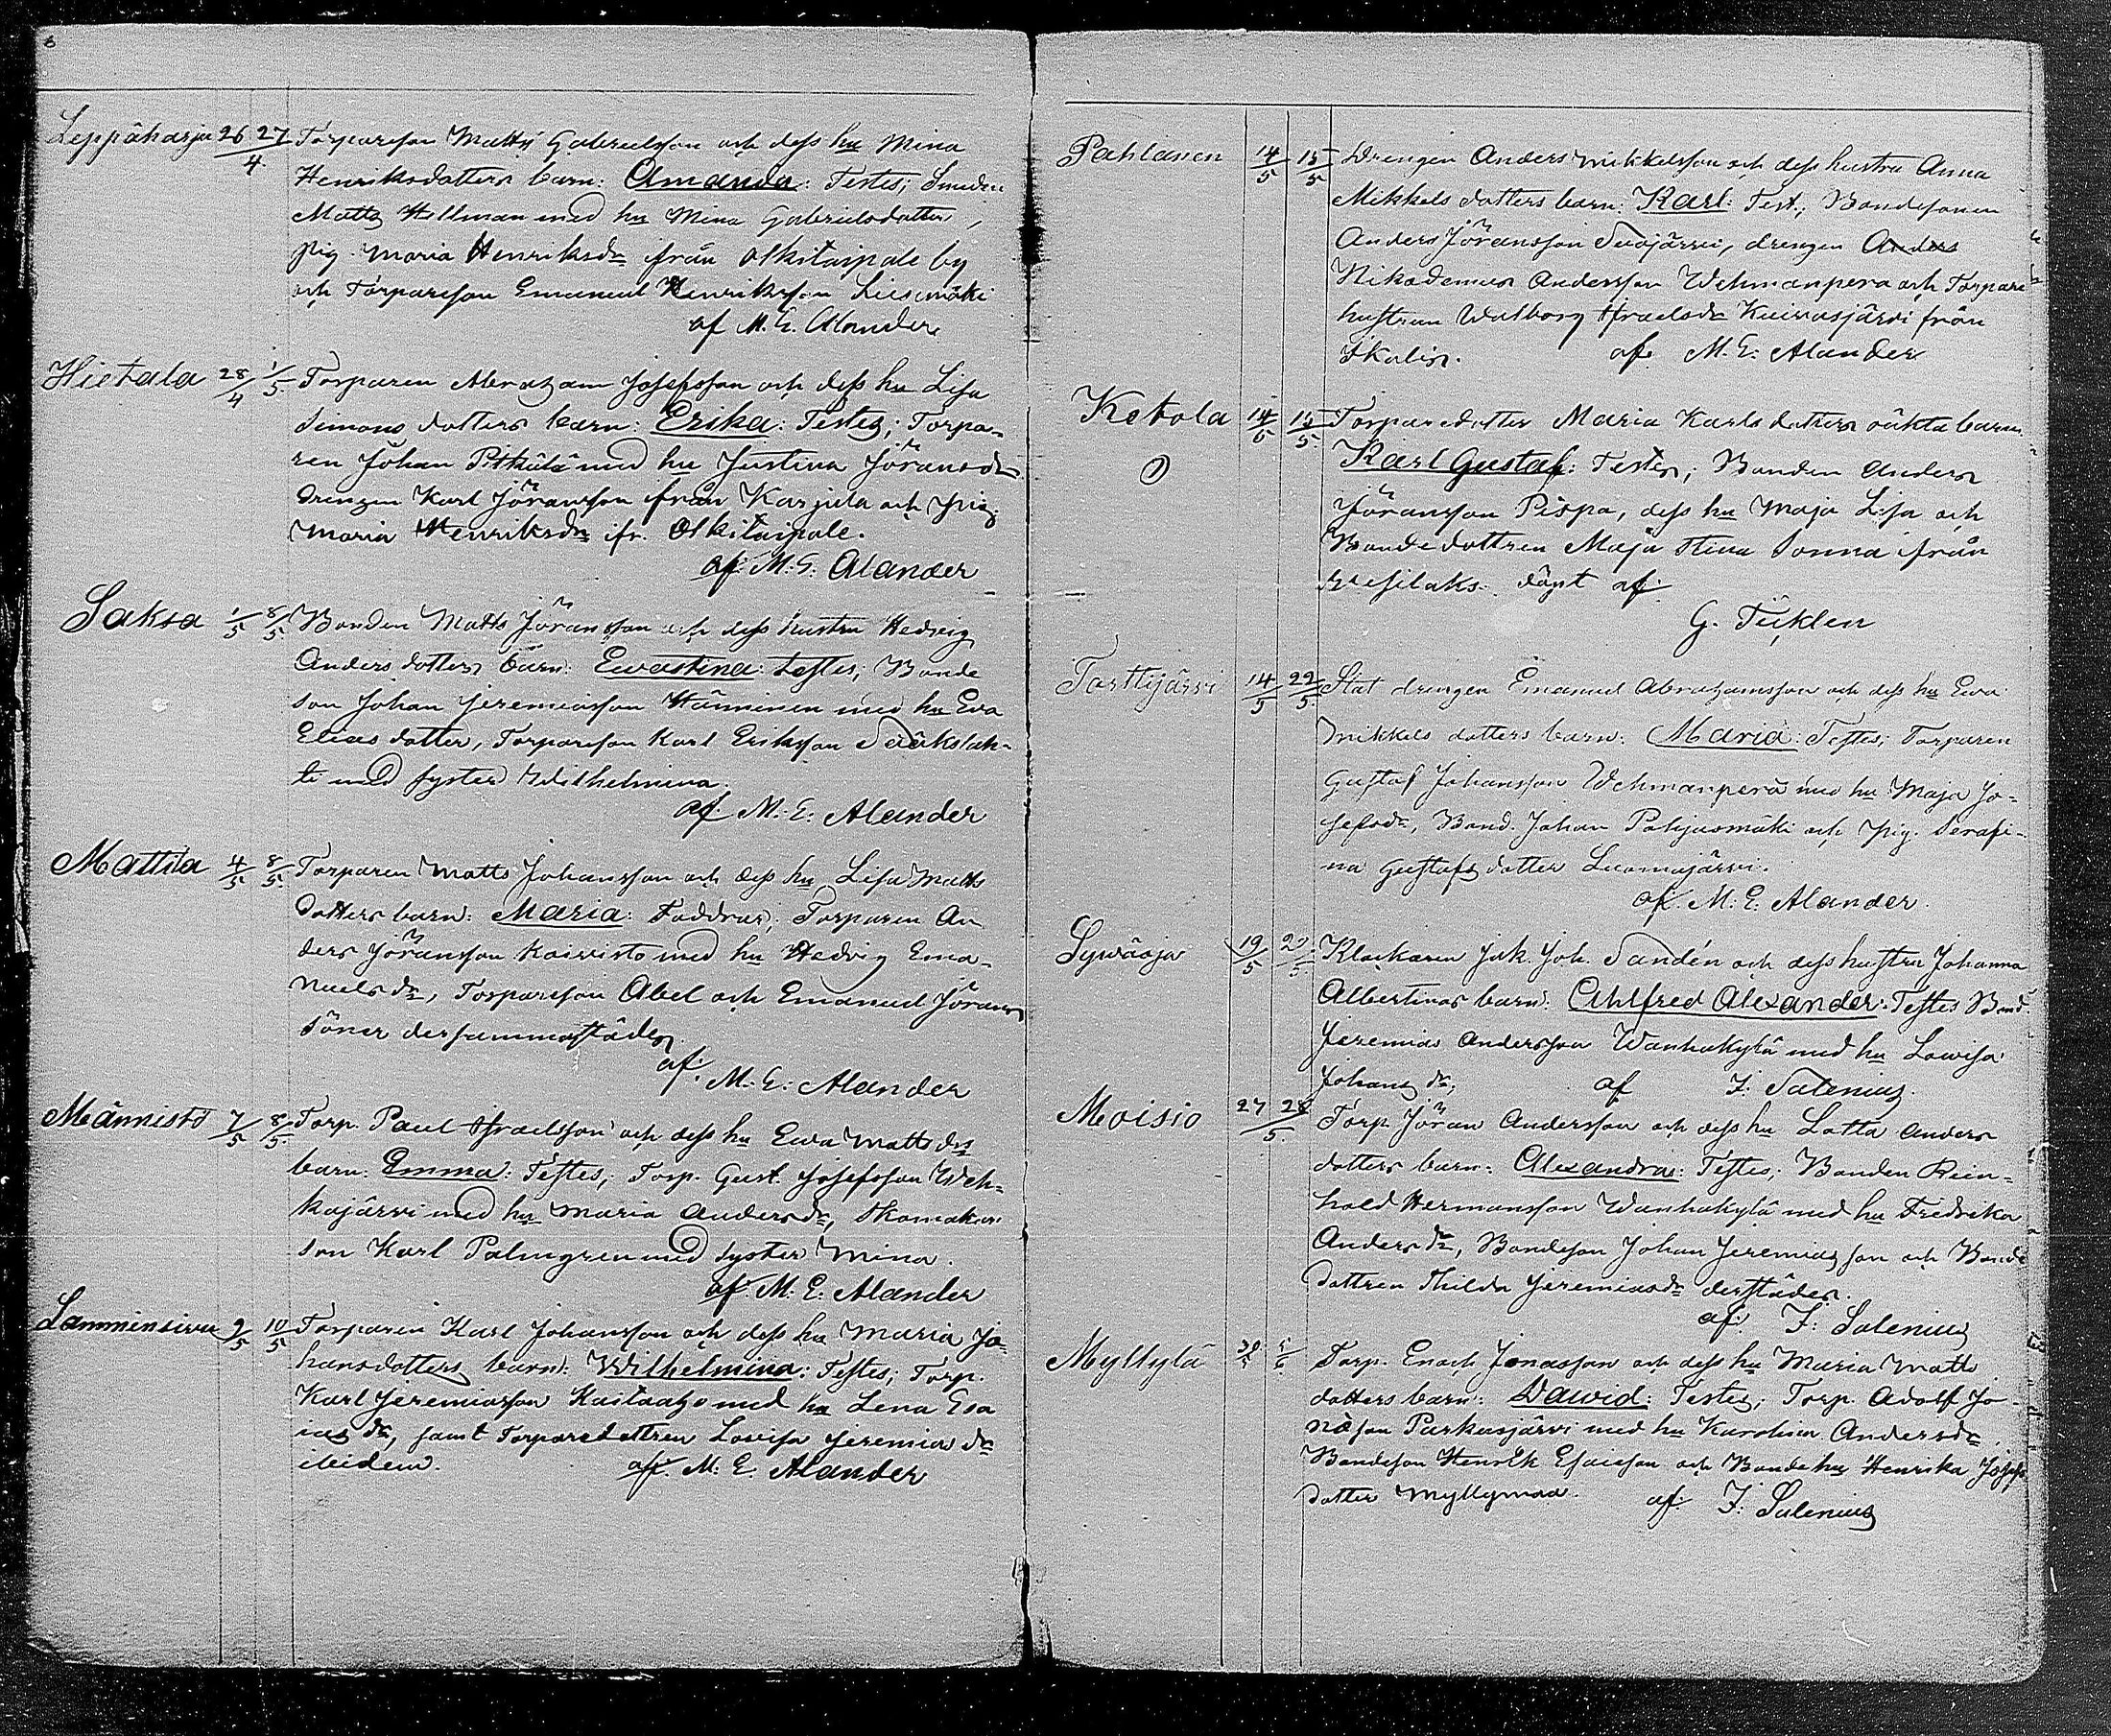 Leppäharju 26 27/4 Torpareson Matts Gabrielsson och dess hu Mina
Henriksdotters barn: Amanda: Testes; Smeden
Matts Hellman med hu Mina Gabrielsdotter,
pig. Maria Henriksdr ifrån Olkitaipale by
och Torpareson Emanuel Henriksson Liesimäki
af M. E. Alander
Hietala 28/4 1/5 Torparen Abraham Josefsson och dess hu Lisa
Simons dotters barn: Erika: Testes; Torpa-
ren Johan Pitkälä med hu Justina Jöransdr
drengen Karl Jöransson från Karjula och pig.
Maria Henriksdr ifr. Olkitaipale.
af. M. E. Alander
Saksa 1/5 8/5 Bonden Matts Jöransson och dess hustru Hedvig
Anders dotters barn: Ewastina: testes; Bonde
son Johan Jeremiasson Hänninen med hu Eva
Elias dotter, Torpareson Karl Eriksson Sääkslah-
ti med syster Wilhelmina.
af M. E. Alander
Mattila 4/5 8/5 Torparen Matts Johansson och dess hu Lisa Matts
dotters barn: Maria: Faddrar; Torparen An
ders Jöransson Koivisto med hu Hedvig Ema-
nuelsdr, Torpareson Abel och Emanuel Jörans
söner dersammastädes
af. M. E. Alander
Männistö 7/5 8/5 Torp. Paul Israelsson och dess hu Ewa Mattsdrs
barn: Emma: Testes; Torp. Gust. Josefsson Weh-
kajärvi med hu Maria Andersdr, Skomakar
son Karl Palmgren med syster Mina.
af M. E. Alander
Lamminsivu 9/5 10/5 Torparen Karl Johansson och dess hu Maria Jo-
hansdotters barn: Wilhelmina: Testes; Torp.
Karl Jeremiasson Kaitaatzo med hu Lena Esa
ias dr, samt Torparedottren Lovisa Jeremias dr
ibidem. af. M. E. Alander
Pahlanen 14/5 15/5 Drengen Anders Mikkelsson och dess hustru Anna
Mikkels dotters barn: Karl: Test; Bondesonen
Anders Jöransson Suojärvi, drengen Anders
Nikodemus Andersson Wehmanperä och Torpare
hustrun Walborg Israelsdr Kuivasjärvi från
Ikalis. af. M. E. Alander
Ketola 14/5 15/5 Torparedotter Maria Karls dotters oäkta barn
O Karl Gustaf: Testes; Bonden Anders
Jöransson Pispa, dess hu Maja Lisa och
Bondedottren Maja Stina Sonna ifrån
döpt af
G. Ticklen
Tarttijärvi 14/5 22/5 Stat drengen Emanuel Abrahamsson och dess hu Ewa
Mikkels dotters barn: Maria: Testes; Torparen
Gustaf Johansson Wehmanperä med hu Maja Jo-
sefsdr, Bond. Johan Pohjasmäki och pig. Serafi-
na Gustafsdotter Luomajärvi.
af. M. E. Alander.
Sywäoja 19/5 20/5 Klockaren Jak. Joh. Sandén och dess hustru Johanna
Albertinas barn: Ahlfred Alexander: Testes Bond.
Jeremias Andersson Wanhakylä med hu Lowisa
Johans dr; af F. Salenius
Moisio 27 28/5 Torp Jöran Andersson och dess hu Lotta Anders
dotters barn: Alexandra: Testes; Bonden Rein-
hold Hermansson Wanhakylä med hu Fredrika
Anders dr, Bondeson Johan Jeremiasson och Bonde
dottren Thilda Jeremiasdr derstädes.
af. F. Salenius
Myllylä 30/5 5/6 Torp. Enoch Jonasson och dess hu Maria Matts
dotters barn: Dawid: Testes; Torp. Adolf Jo-
nasson Parkasjärvi med hu Karolina Andersdr,
Bondeson Henrik Esaiesson och Bonde hu Henrika Josefs
dotter Myllymaa. af F. Salenius